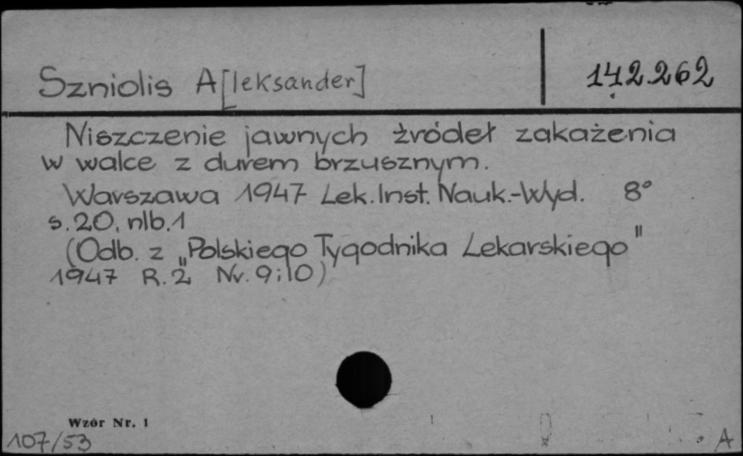 Szniolis A[leksander]
142262
Niszczenie jawnych źródeł zakażenia
w walce z durem brzusznym.
Warszawa 1947 Lek. Inst. Nauk.-Wyd. 8°
s. 20, nlb. 1
(Odb. z „Polskiego Tygodnika Lekarskiego"
1947 R. 2 Nr. 9 i 10)
Wzór Nr. 1
107/53
A